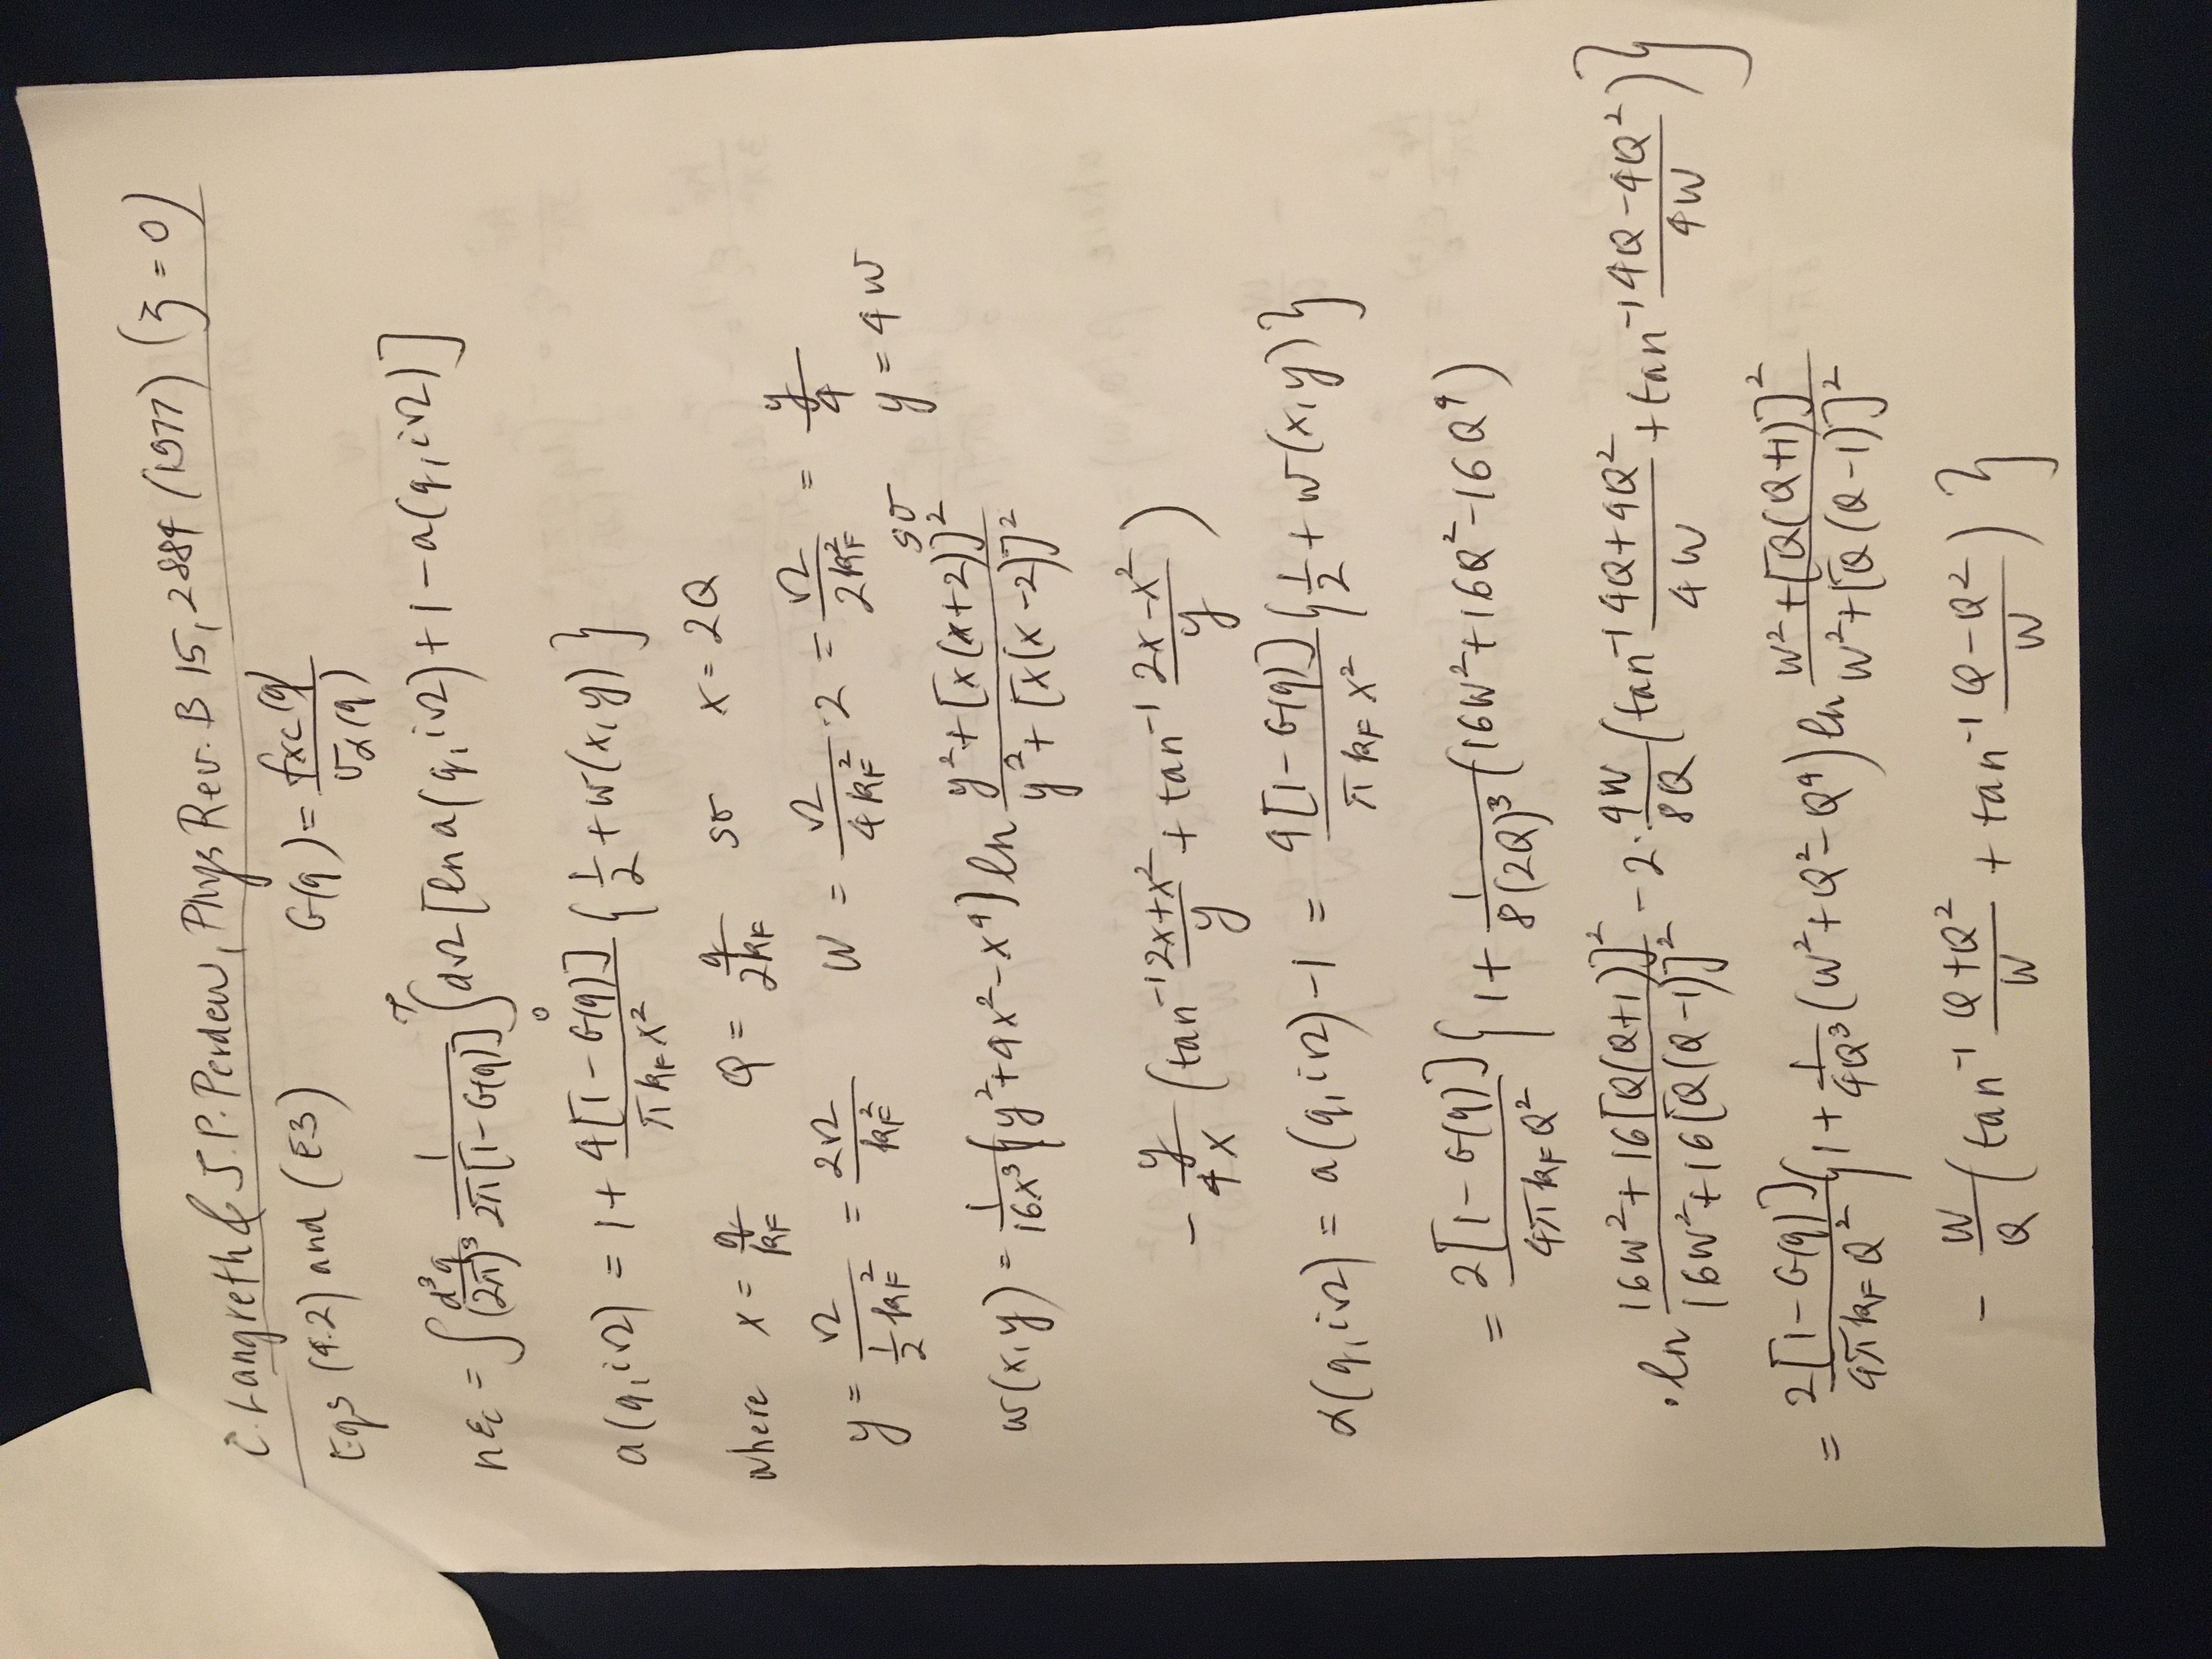 C. Langreth & J.P. Perdew, Phys Rev. B 15, 2884 (1977) (ζ = 0)
Eqs (4.2) and (E3) G(q) = fxc(q) / vx(q)
nεc = ∫ d³q/(2π)³ 1/(2π[1-G(q)]) ∫₀^∞ dΩ [ln a(q, iΩ) + 1 - a(q, iΩ)]
a(q, iΩ) = 1 + 4[1 - G(q)]/(π kF x²) {1/2 + w(x, y)}
where x = q/kF Q = q/(2kF) so x = 2Q
y = Ω/(½ kF²) = 2Ω/kF² W = Ω/(4kF²) · 2 = Ω/(2kF²) = y/4
so y = 4W
w(x, y) = 1/(16x³) (y² + 4x² - x⁴) ln (y² + [x(x+2)]²)/(y² + [x(x-2)]²)
- y/(4x) (tan⁻¹ (2x+x²)/y + tan⁻¹ (2x-x²)/y)
α(q, iΩ) = a(q, iΩ) - 1 = 4[1 - G(q)]/(π kF x²) {1/2 + w(x, y)}
= 2[1 - G(q)]/(4π kF Q²) {1 + 1/(8(2Q)³) (16W² + 16Q² - 16Q⁴)
· ln (16W² + 16[Q(Q+1)]²)/(16W² + 16[Q(Q-1)]²) - 2 · 4W/(8Q) (tan⁻¹ (4Q+4Q²)/(4W) + tan⁻¹ (4Q-4Q²)/(4W))}
= 2[1 - G(q)]/(4π kF Q²) {1 + 1/(4Q³) (W² + Q² - Q⁴) ln (W² + [Q(Q+1)]²)/(W² + [Q(Q-1)]²)
- W/Q (tan⁻¹ (Q+Q²)/W + tan⁻¹ (Q-Q²)/W) }